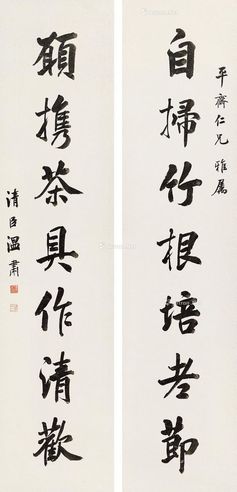 平齋仁兄雅屬
自掃竹根培老節
願携茶具作清歡
清臣溫肅